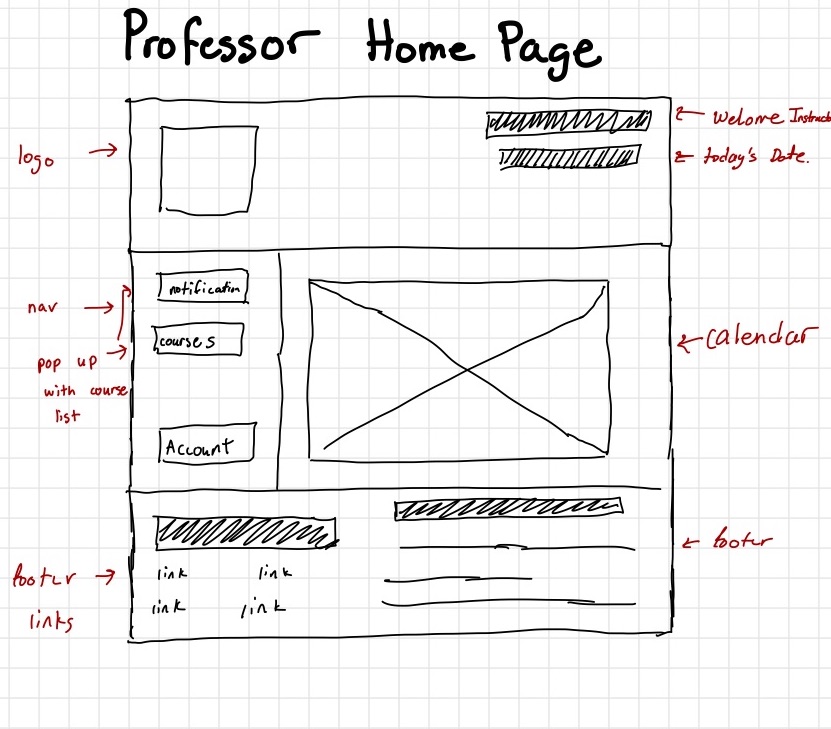 Professor Home Page
logo
Welome Instruct
today's Date.
nav
notification
courses
pop up
with course
list
Account
Calendar
footer
links
link link
link link
footer